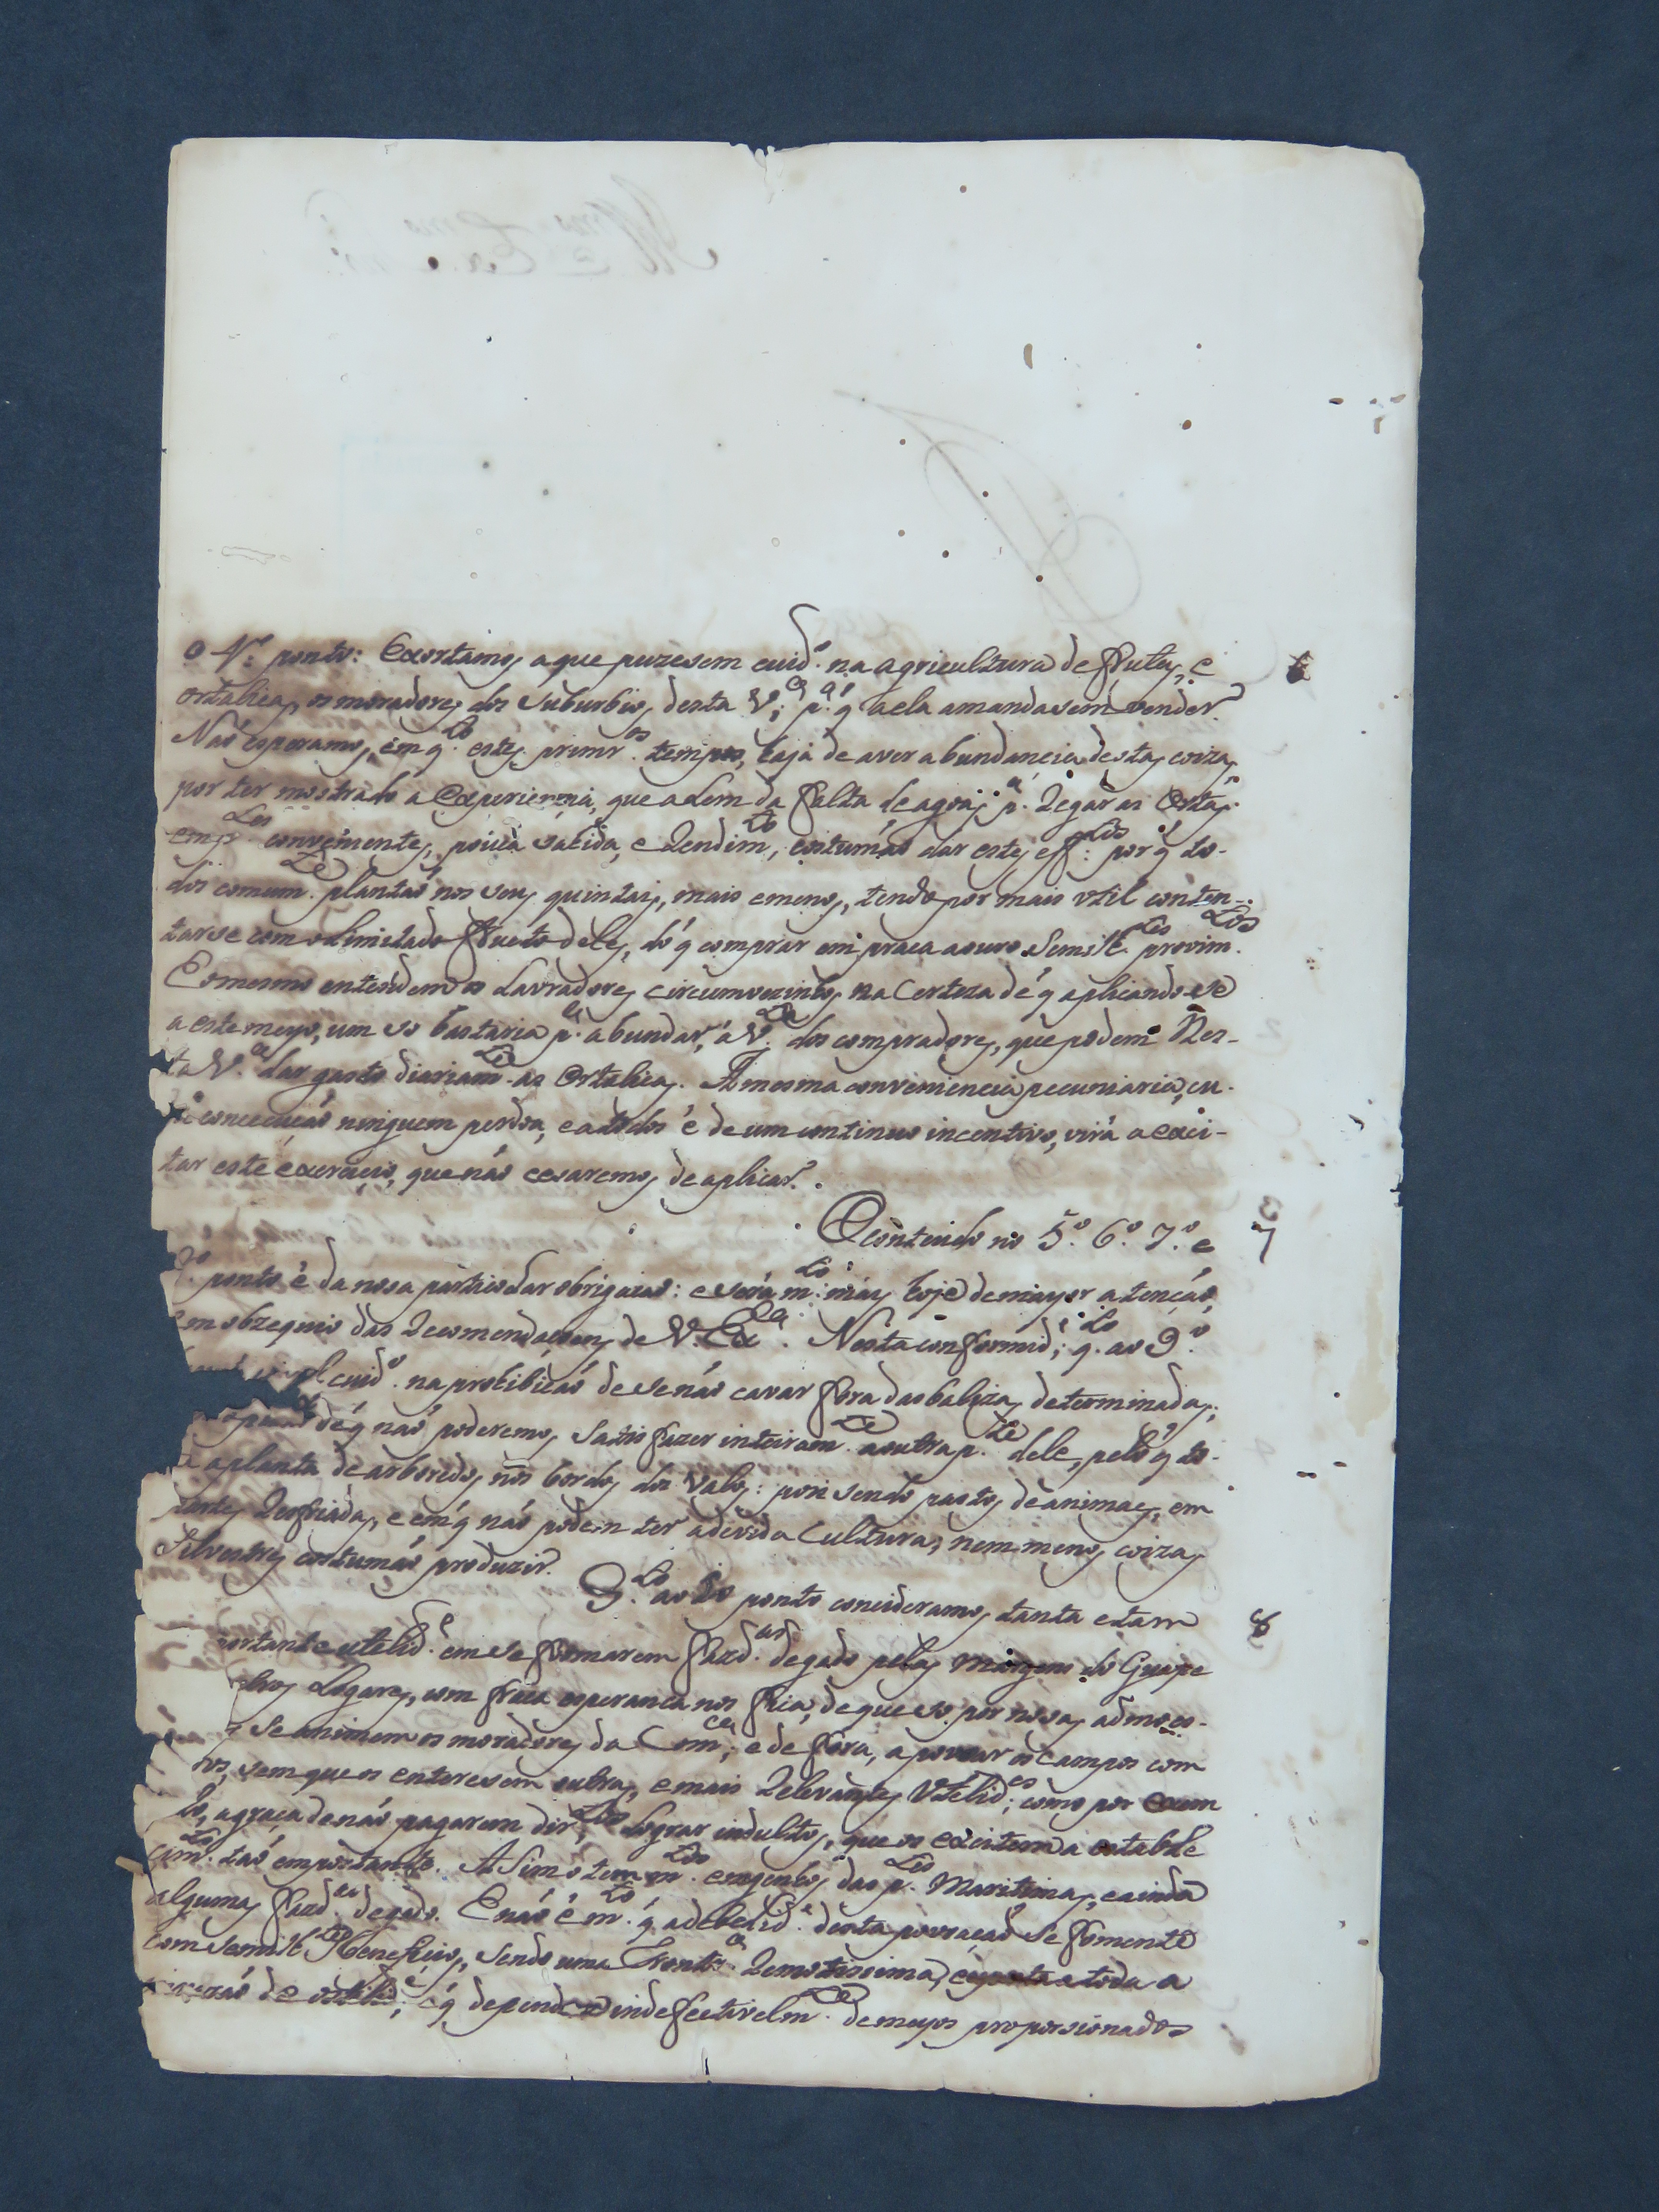 O 4.º ponto: Exortamos a que puzesem cuid.º na agricultura de frutas, e 6
ortaliças, os moradores dos suburbios desta V.ª p.ª q̃ a ela a mandasem vender.
Naõ esperamos, em q.to estes primr.os tempos, haja de aver abundancia destas coizas,
por ter mostrado a experiencia, que alem da falta de agoas p.ª Regar as Ortas
em p.tes convenientes, pouca sahida, e Rendim.to, costumaõ dar estes eff.tos: por q̃ to-
dos comum.te plantaõ nos seus quintais, mais e menos, tendo por mais util conten-
tarse com o limitado fructo deles, do q̃ comprar em praca a ouro semilh.tes provim.tos
E o mesmo entendem os Lavradores circumvezinhos, na certeza de q̃ aplicandose
a este meyo, um so bastaria p.ª abundar a V.ª dos compradores, que podem Nes-
ta V.ª dar gasto diariam.te as Ortaliças. A mesma conveniencia pecuniaria, cu-
concecucaõ ninguem perdoa, e a todos é de um continuo incentivo, virá a exci-
tar este exercicio, que naõ cesaremos de aplicar.
O contendo no 5.º 6.º 7.º e 7
8.º ponto é da nosa particular obrigacaõ: e será m.to mais hoje de mayor atençaõ,
em obzequio das Recomendacoens de V. Ex.ª. Nesta conformid.e; q.to ao 9.º
cuid.º na prohibiçaõ de se naõ cavar fora das balizas determinadas;
de q̃ naõ poderemos satisfazer inteiram.te a outra p.te dele, pelo q̃ to-
a planta de arboredos nos bordos dos valos: pois sendo pastos de animaes, em
partes Resfriadas, e em q̃ naõ podem ter a devida cultura, nem menos coizas
silvestres costumaõ produzir.
Q.to ao 10 ponto concideramos tanta e tam 8
portante utelid.e em se formarem fazd.as de gado pelas margens do Guape
Logares, com fraca esperanca nos fica, de que so por nosas admoes-
se animem os moradores da Com.ca, e de fora, a povoar os campos com
sem que os enteresem outras, e mais Relevantes Utelid.es; como por exem
lo, a graça de naõ pagarem dir.tos Lograr indultos, que os excitem a estabele
cim.to taõ emportante. Asim o tem m.tos engenhos das p.tes Maritimas, e ainda
algumas fazd.as de gado. E naõ é m.to q̃ a debelid.e desta povoaçaõ se fomente
com semilh.tes Beneficios, sendo uma Frontr.ª Remotissima, exposta a toda a
de ostilid.e, e q̃ depende indefectivelm.te de meyos proporsionados